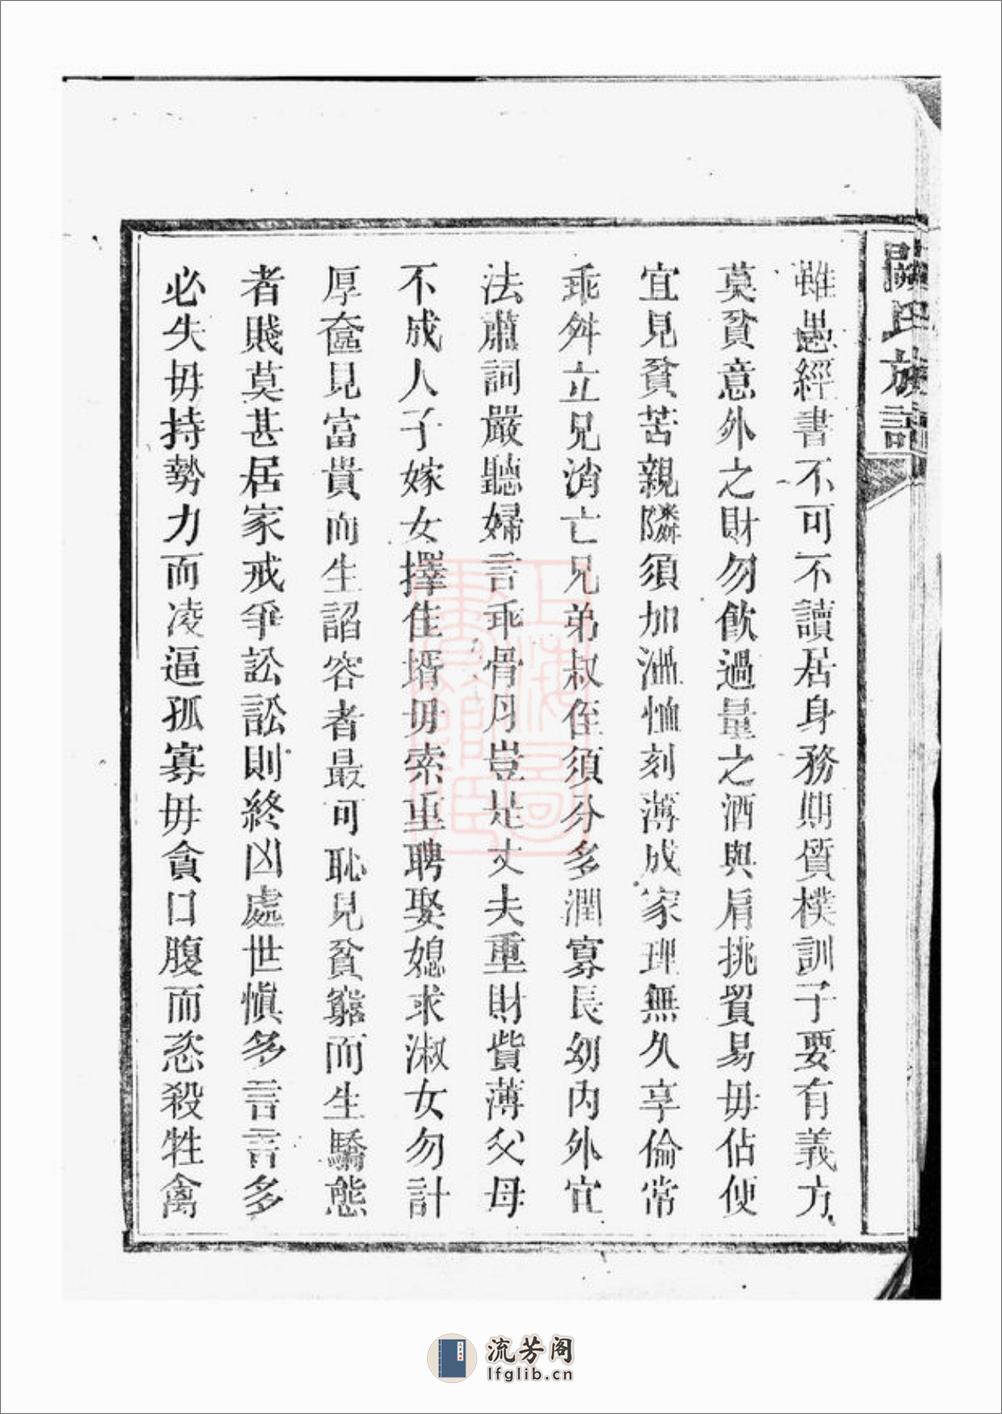 關氏族譜
雖愚經書不可不讀居身務期質樸訓子要有義方
莫貧意外之財勿飲過量之酒與肩挑貿易毋佔便
宜見貧苦親隣須加溫恤刻薄成家理無久享倫常
乖舛立見消亡兄弟叔侄須分多潤寡長幼內外宜
法肅詞嚴聽婦言乖骨月豈是丈夫重財貲薄父母
不成人子嫁女擇佳壻毋索重聘娶媳求淑女勿計
厚奩見富貴而生謟容者最可恥見貧窮而生驕態
者賤莫甚居家戒爭訟訟則終凶處世慎多言言多
必失毋持勢力而凌逼孤寡毋貪口腹而恣殺牲禽
上海圖
書館藏
流芳阁
lfglib.cn